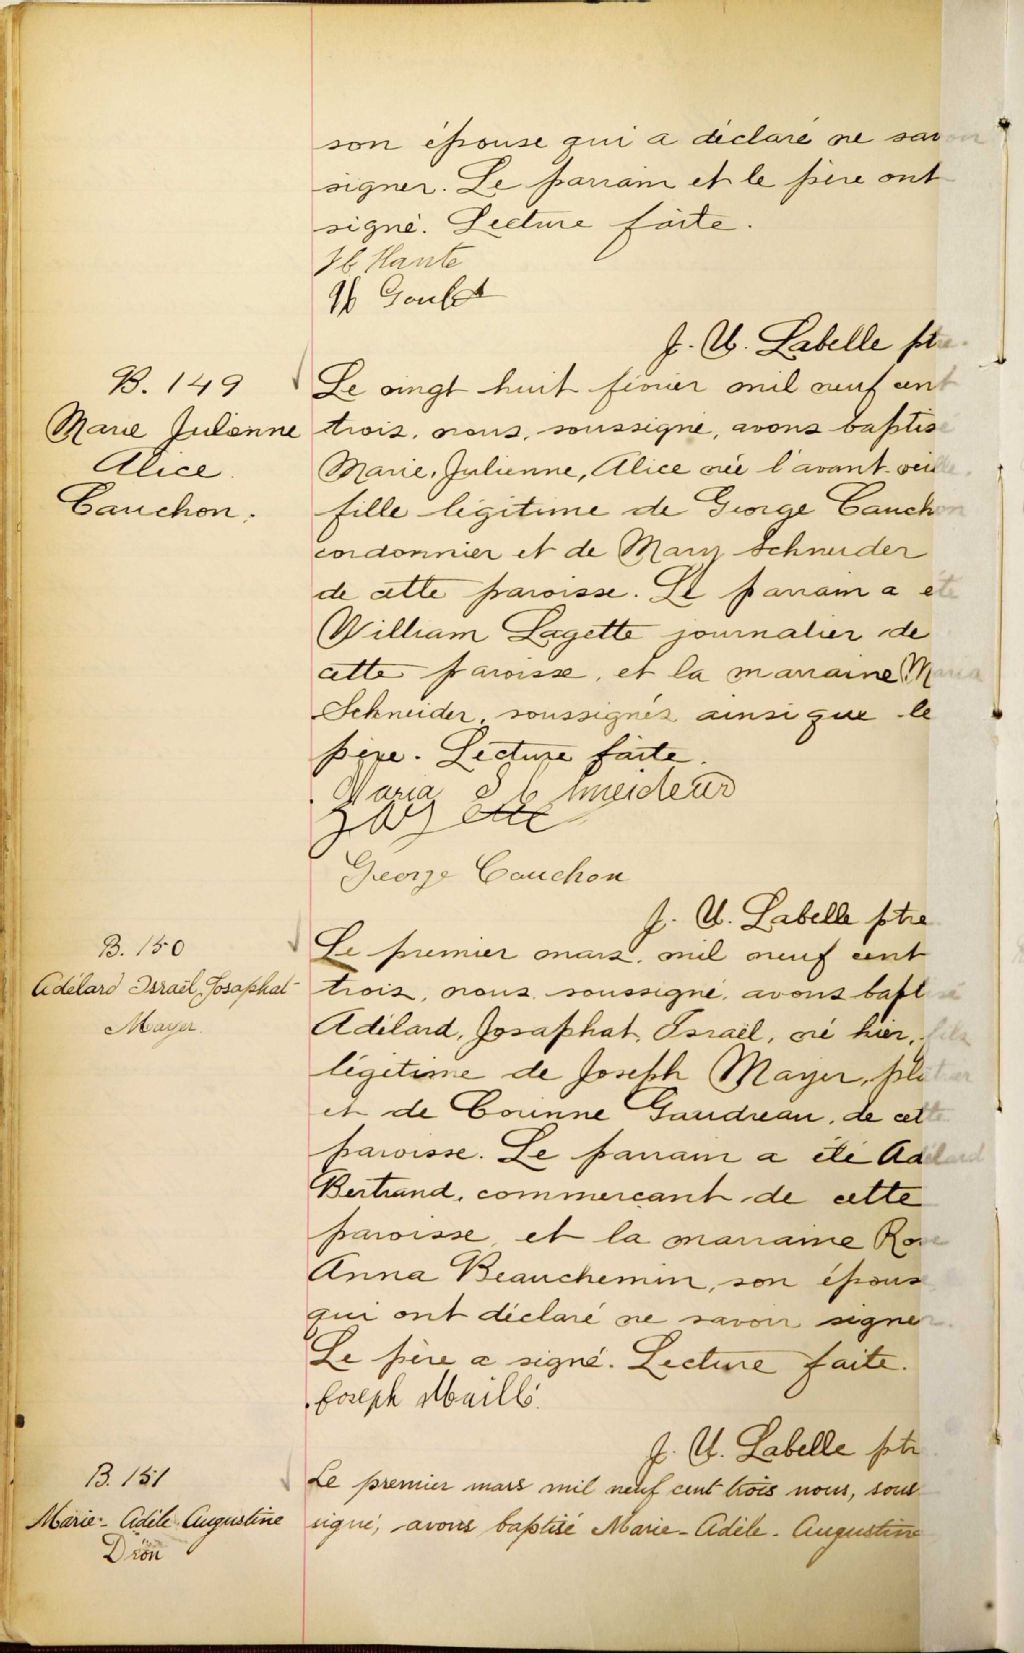 son épouse qui a déclaré ne savoir
signer. Le parrain et le père ont
signé. Lecture faite.
J. U. Labelle ptre.
B. 149
Marie Julienne
Alice
Cauchon.
Le vingt huit février mil neuf cent
trois, nous, soussigné, avons baptisé
Marie, Julienne, Alice née l'avant-veille.
fille légitime de George Cauchon
cordonnier et de Mary Schneider
de cette paroisse. Le parrain a été
William Lagette journalier de
cette paroisse, et la marraine Maria
Schneider, soussignés ainsi que le
père. Lecture faite.
Maria Schneider
George Cauchon
J. U. Labelle ptre
B. 150
Adélard Israël, Josaphat
Mayer.
Le premier mars, mil neuf cent
trois, nous soussigné, avons baptisé
Adélard, Josaphat, Israël, né hier, fils
légitime de Joseph Mayer, plâtrier
et de Corinne Gaudreau, de cette
paroisse. Le parrain a été Adélard
Bertrand, commerçant de cette
paroisse, et la marraine Rose
Anna Beauchemin, son épouse
qui ont déclaré ne savoir signer.
Le père a signé. Lecture faite.
Joseph Maillé
J. U. Labelle ptr
B. 151
Marie-Adèle Augustine
Drön
Le premier mars mil neuf cent trois nous, sous
signé, avons baptisé Marie-Adèle-Augustine